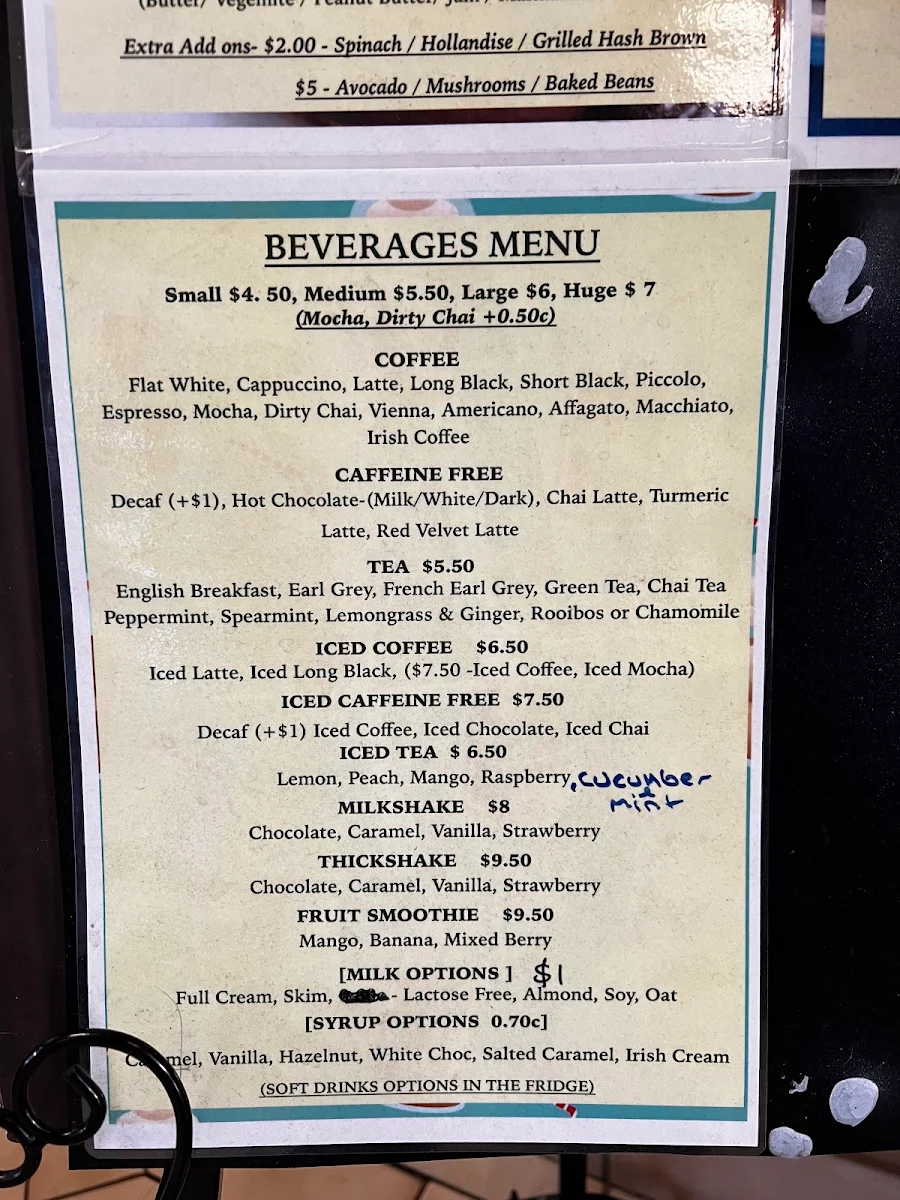 Extra Add ons- $2.00 - Spinach / Hollandise / Grilled Hash Brown
$5 - Avocado / Mushrooms / Baked Beans
BEVERAGES MENU
Small $4. 50, Medium $5.50, Large $6, Huge $ 7
(Mocha, Dirty Chai +0.50c)
COFFEE
Flat White, Cappuccino, Latte, Long Black, Short Black, Piccolo,
Espresso, Mocha, Dirty Chai, Vienna, Americano, Affagato, Macchiato,
Irish Coffee
CAFFEINE FREE
Decaf (+$1), Hot Chocolate-(Milk/White/Dark), Chai Latte, Turmeric
Latte, Red Velvet Latte
TEA $5.50
English Breakfast, Earl Grey, French Earl Grey, Green Tea, Chai Tea
Peppermint, Spearmint, Lemongrass & Ginger, Rooibos or Chamomile
ICED COFFEE $6.50
Iced Latte, Iced Long Black, ($7.50 -Iced Coffee, Iced Mocha)
ICED CAFFEINE FREE $7.50
Decaf (+$1) Iced Coffee, Iced Chocolate, Iced Chai
ICED TEA $ 6.50
Lemon, Peach, Mango, Raspberry, cucumber
& mint
MILKSHAKE $8
Chocolate, Caramel, Vanilla, Strawberry
THICKSHAKE $9.50
Chocolate, Caramel, Vanilla, Strawberry
FRUIT SMOOTHIE $9.50
Mango, Banana, Mixed Berry
[MILK OPTIONS ] $1
Full Cream, Skim, - Lactose Free, Almond, Soy, Oat
[SYRUP OPTIONS 0.70c]
Caramel, Vanilla, Hazelnut, White Choc, Salted Caramel, Irish Cream
(SOFT DRINKS OPTIONS IN THE FRIDGE)